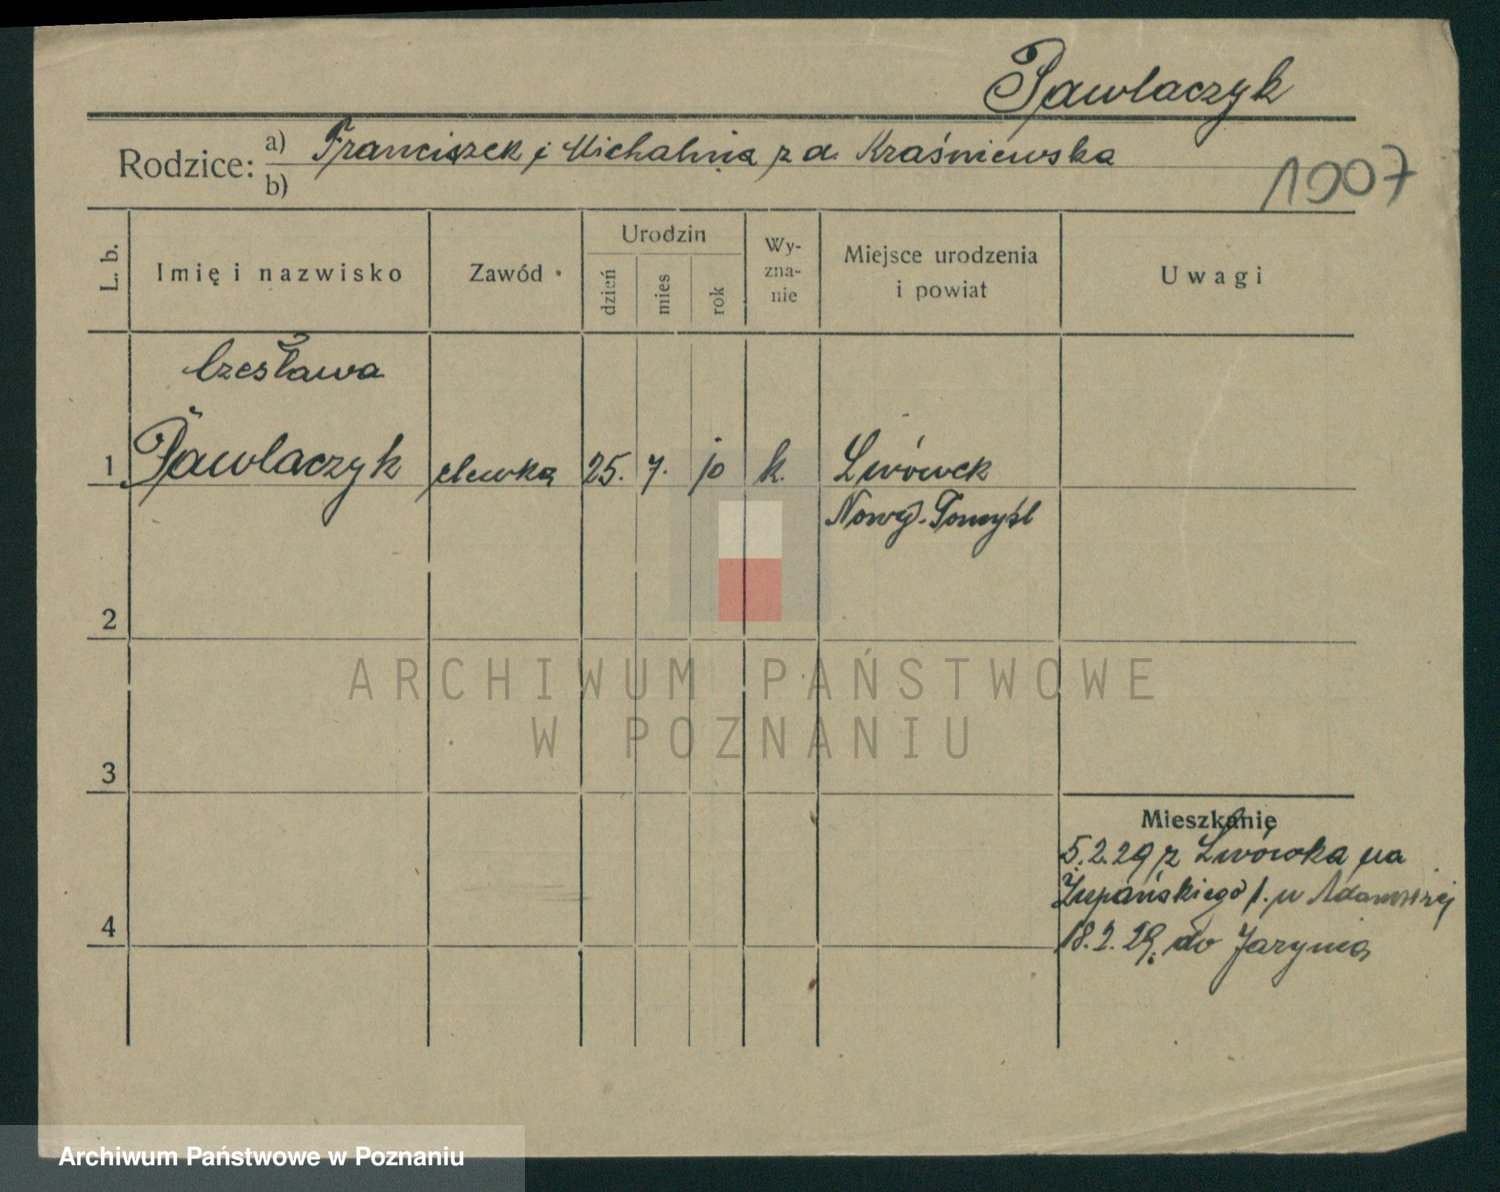 Pawlaczyk
Rodzice: a) Franciszek i Michalina z d. Kraśniewska
b)
1907
L. b.
Imię i nazwisko
Zawód
Urodzin
dzień
mies
rok
Wy-
zna-
nie
Miejsce urodzenia
i powiat
Uwagi
Czesława
1 Pawlaczyk elewka 25. 7. 10 k. Lwówek
Nowy-Tomyśl
2
ARCHIWUM PAŃSTWOWE
W POZNANIU
3
Mieszkanie
5.2.29 z Lwówka na
Żupańskiego 1. u
4
18.2.29. do
Archiwum Państwowe w Poznaniu